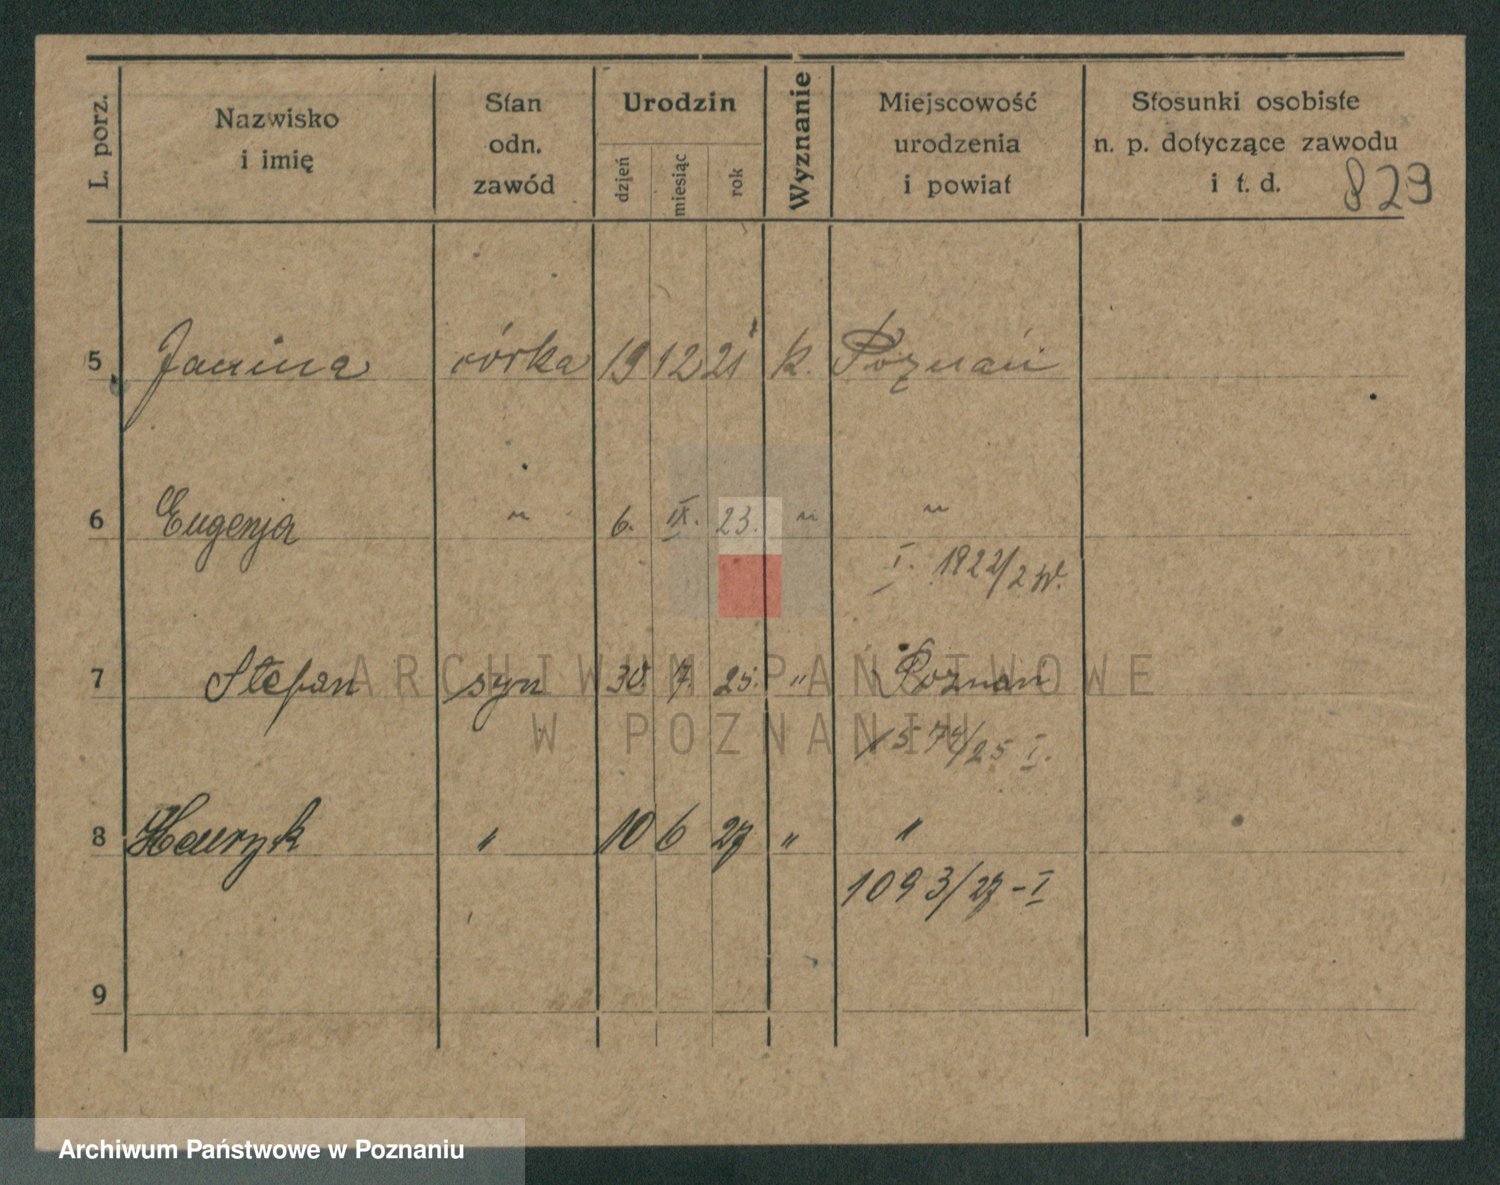 L. porz.
Nazwisko
i imię
Stan
odn.
zawód
Urodzin
dzień
miesiąc
rok
Wyznanie
Miejscowość
urodzenia
i powiat
Stosunki osobiste
n. p. dotyczące zawodu
i t. d.
829
5 Janina córka 19 12 21 k. Poznań
6 Eugenja " 6. IX. 23. " "
I. 1922/2 W.
7 Stefan syn 30 7 25. " Poznan
1574/25 I.
8 Henryk " 10 6 27 " "
1093/27-I
9
ARCHIWUM PAŃSTWOWE
W POZNANIU
Archiwum Państwowe w Poznaniu